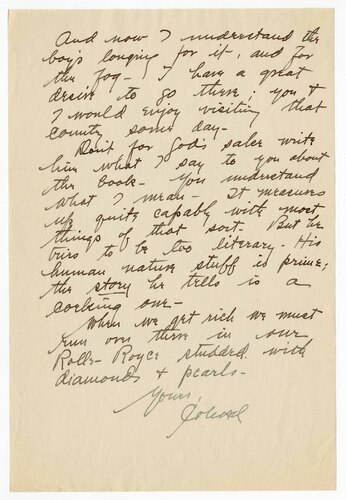 And now I understand the
boy's longing for it, and for
the fog - I have a great
desire to go there; you &
I would enjoy visiting that
country some day -
Don't for God's sake write
him what I say to you about
the book - You understand
what I mean - It measures
up quite capably with most
things of that sort. But he
tries to be too literary. His
human nature stuff is prime;
the story he tells is a
corking one -
When we get rich we must
run over there in our
Rolls-Royce studded with
diamonds & pearls -
Yours,